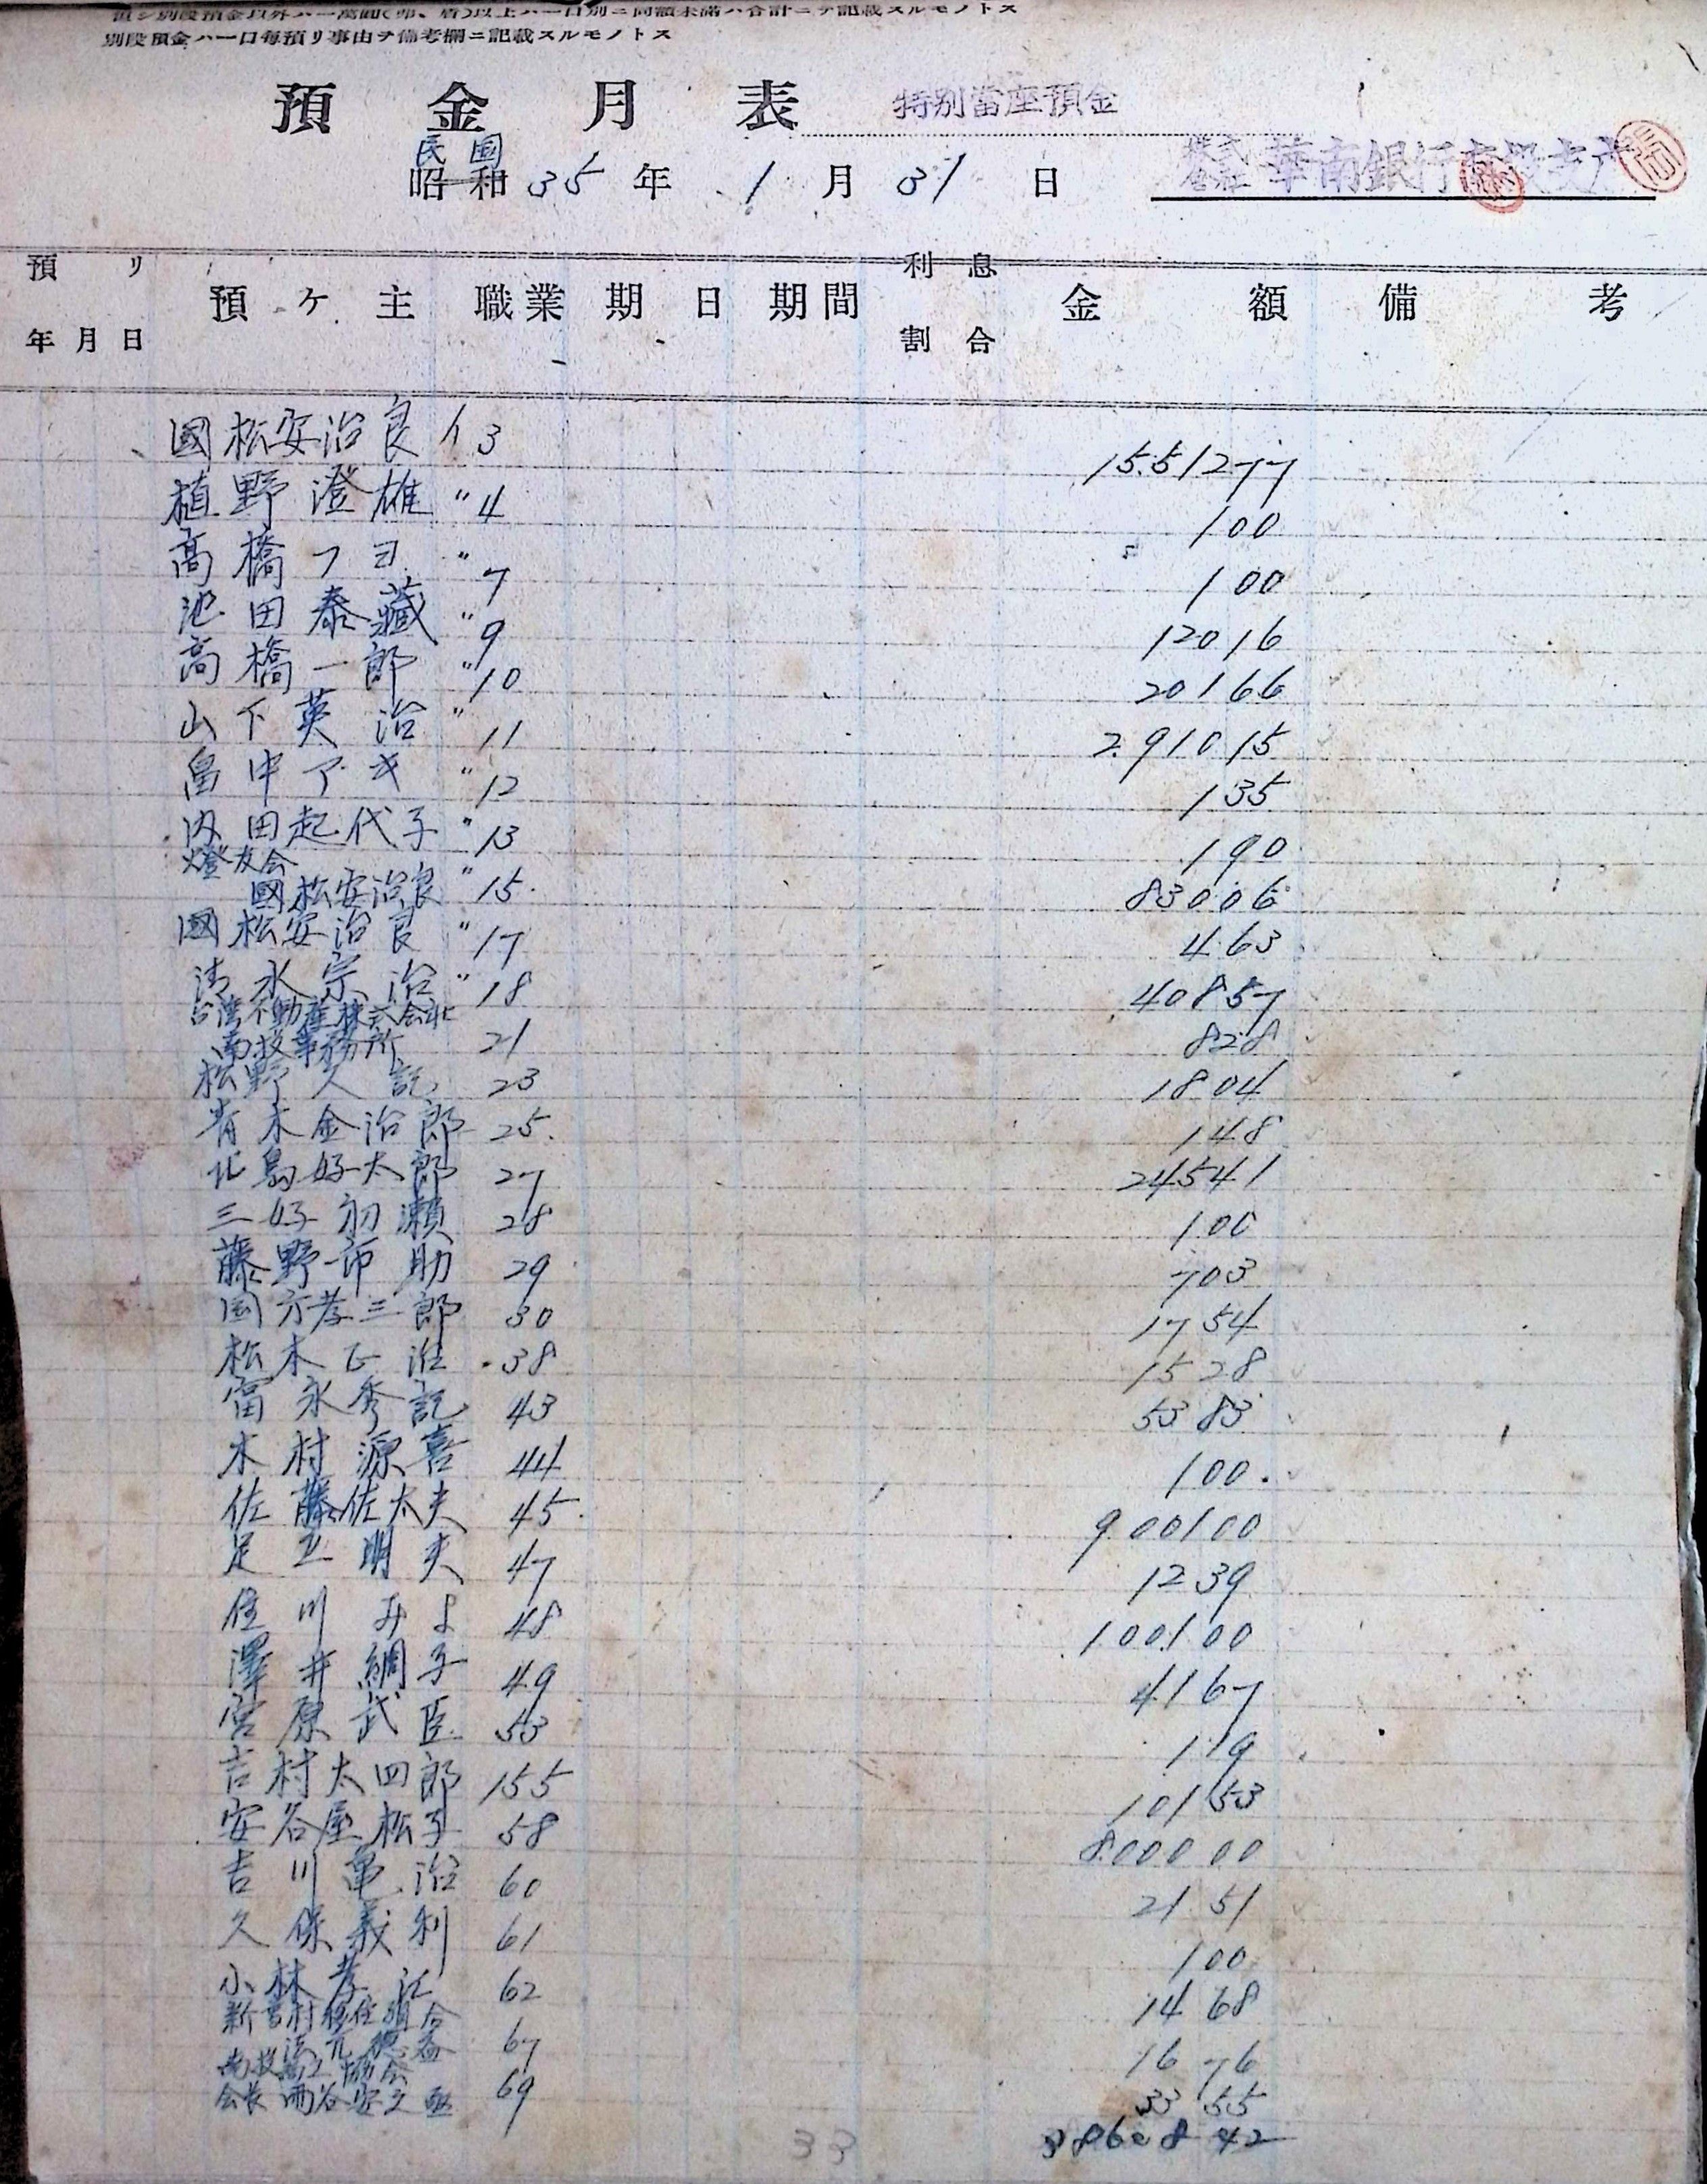 別段預金ハ一口每預リ事由ヲ備考欄ニ記載スルモノトス
預金月表 特別當座預金
民國
昭和 35 年 1 月 31 日 株式會社 華南銀行南投支店
預リ年月日 預ケ主 職業 期日 期間 利息割合 金額 備考
國松安治良 イ3 15.512 77
植野澄雄 〃4 1 00
髙橋フヨ 〃7 1 00
池田泰藏 〃9 120 16
高橋一郎 〃10 201 66
山下英治 〃11 2.910 15
畠中アキ 〃12 1 35
内田起代子 〃13 1 90
燈友会
國松安治良 〃15 830 06
國松安治良 〃17 4 63
清水宗治 〃18 408 57
台湾不動産株式会社
南投事務所 21 8 28
松野久記 23 18 04
青木金治郎 25 1 48
北島好太郎 27 245 41
三好初瀬 28 1 00
藤野市助 29 7 03
国方孝三郎 30 17 54
松木正 38 15 28
富永秀記 43 53 83
木村源喜 44 1 00
佐藤佐太夫 45 9.001 00
足立明夫 47 12 39
住川みよ 48 1.001 00
澤井綢子 49 41 67
宮原武臣 53 1 19
吉村太四郎 155 101 53
安谷屋松子 58 8.000 00
吉川亀治 60 21 51
久保義利 61 1 00
小林孝江 62 14 68
67 16 76
会長 雨谷安之亟 69 33 55
38608 42
33